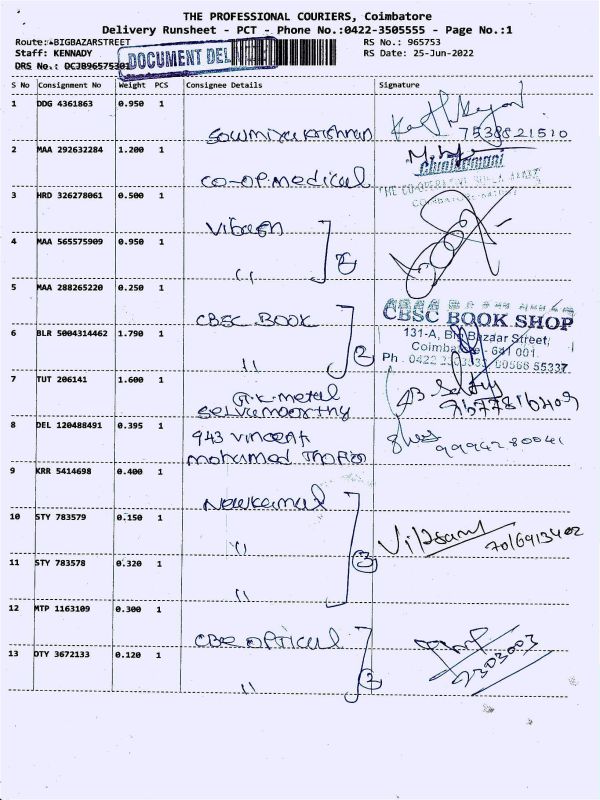 THE PROFESSIONAL COURIERS, Coimbatore
Delivery Runsheet - PCT - Phone No.:0422-3505555 - Page No.:1
Route:-BIGBAZARSTREET RS No.: 965753
Staff: KENNADY RS Date: 25-Jun-2022
DRS No.: DCJB96575301
DOCUMENT DEL
S No Consignment No Weight PCS Consignee Details Signature
1 DDG 4361863 0.950 1
Sowmiya Krishnan 7538821510
2 MAA 292632284 1.200 1
CO-OP. Medical
3 HRD 326278061 0.500 1
4 MAA 565575909 0.950 1
"
5 MAA 288265220 0.250 1
CBSC BOOK
CBSC BOOK SHOP
131-A, Big Bazaar Street,
6 BLR 5004314462 1.790 1
2
Coimbatore - 641 001.
" Ph. 0422
7 TUT 206141 1.600 1
G.K. metal
Selvamoorthy
8 DEL 120488491 0.395 1
943 Vincent
mohamed
9 KRR 5414698 0.400 1
10 STY 783579 0.150 1
"
11 STY 783578 0.320 1
3
"
12 MTP 1163109 0.300 1
CBE OPTICUL
13 DTY 3672133 0.120 1
2
"